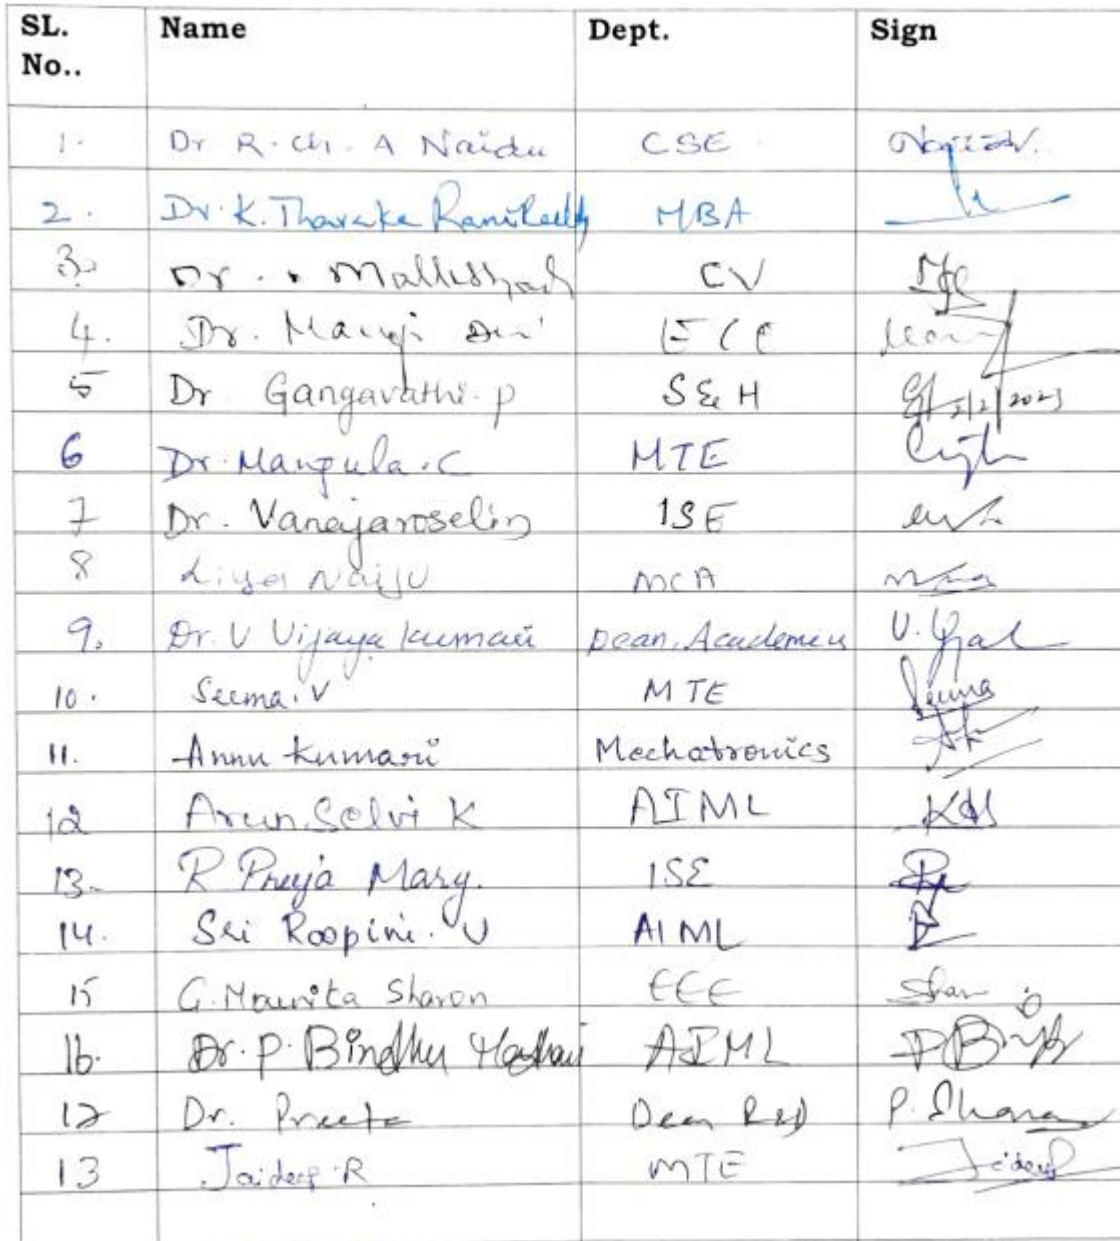 SL. No.. Name Dept. Sign
1. Dr R. Ch. A Naidu CSE
2. Dr. K. Tharaka Rami Reddy MBA
3 Dr. Mallesh CV
4. Dr. ECE
5 Dr. Gangavathi. P S & H 2/2/2023
6 Dr. Manjula. C MTE
7 Dr. Vanajaroselin ISE
8 Liya Naiju MCA
9. Dr. V Vijaya Kumari Dean, Academics V.
10. Seema. V MTE Seema
11. Annu Kumari Mechatronics
12 Arun Selvi K AIML
13. R Preeja Mary. ISE
14. Sri Roopini. U AIML
15 G. Mounita Sharon EEE Sharon
16. Dr. P. Bindhu AIML
17 Dr. Preeta Dean R&D P.
13 Jaideep R MTE Jaideep